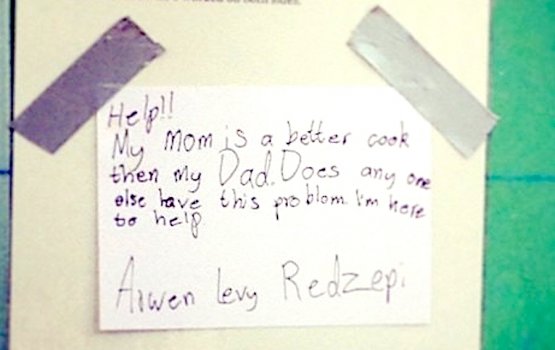 on both sides.
Help!!
My mom is a better cook
then my Dad. Does any one
else have this problom. I'm here
to help
Arwen Levy Redzepi